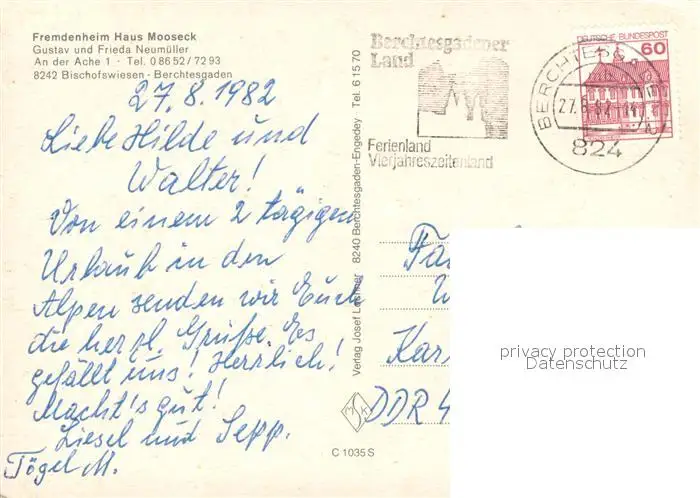 Fremdenheim Haus Mooseck
Gustav und Frieda Neumüller
An der Ache 1 · Tel. 0 86 52 / 72 93
8242 Bischofswiesen - Berchtesgaden
27.8.1982
Liebe Hilde und
Walter!
Von einem 2 tägigen
Urlaub in den
Alpen senden wir Euch
die herzl. Grüße. Es
gefällt uns! Herrlich!
Macht's gut!
Liesel und Sepp.
Tögel M.
Verlag Josef 8240 Berchtesgaden-Engedey Tel. 6 15 70
C 1035 S
Berchtesgadener
Land
Ferienland
Vierjahreszeitenland
27.8.82
824
DEUTSCHE BUNDESPOST
60
Kar
DDR 4
privacy protection
Datenschutz